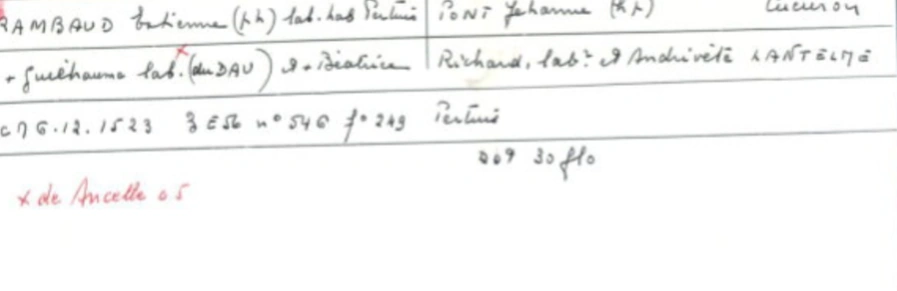 RAMBAUD Estienne (ph) lab. hab Pertuis PONT Jehanne (ph) Cucuron
+ Guilhaume lab. (du DAU) & + Béatrice Richard, labr & Andrivète LANTELME
6.12.1523 3 E 56 n° 546 f° 249 Pertuis
30 flo
x de Ancelle 05